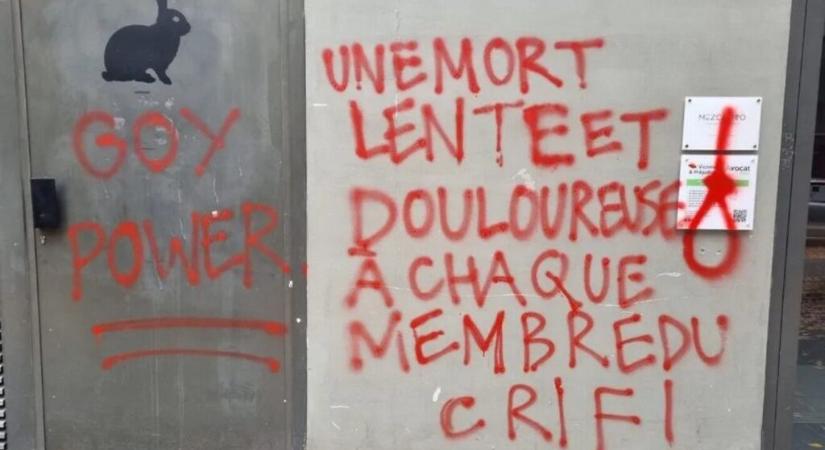 GOY
POWER.
UNE MORT
LENTE ET
DOULOUREUSE
À CHAQUE
MEMBRE DU
CRIF !